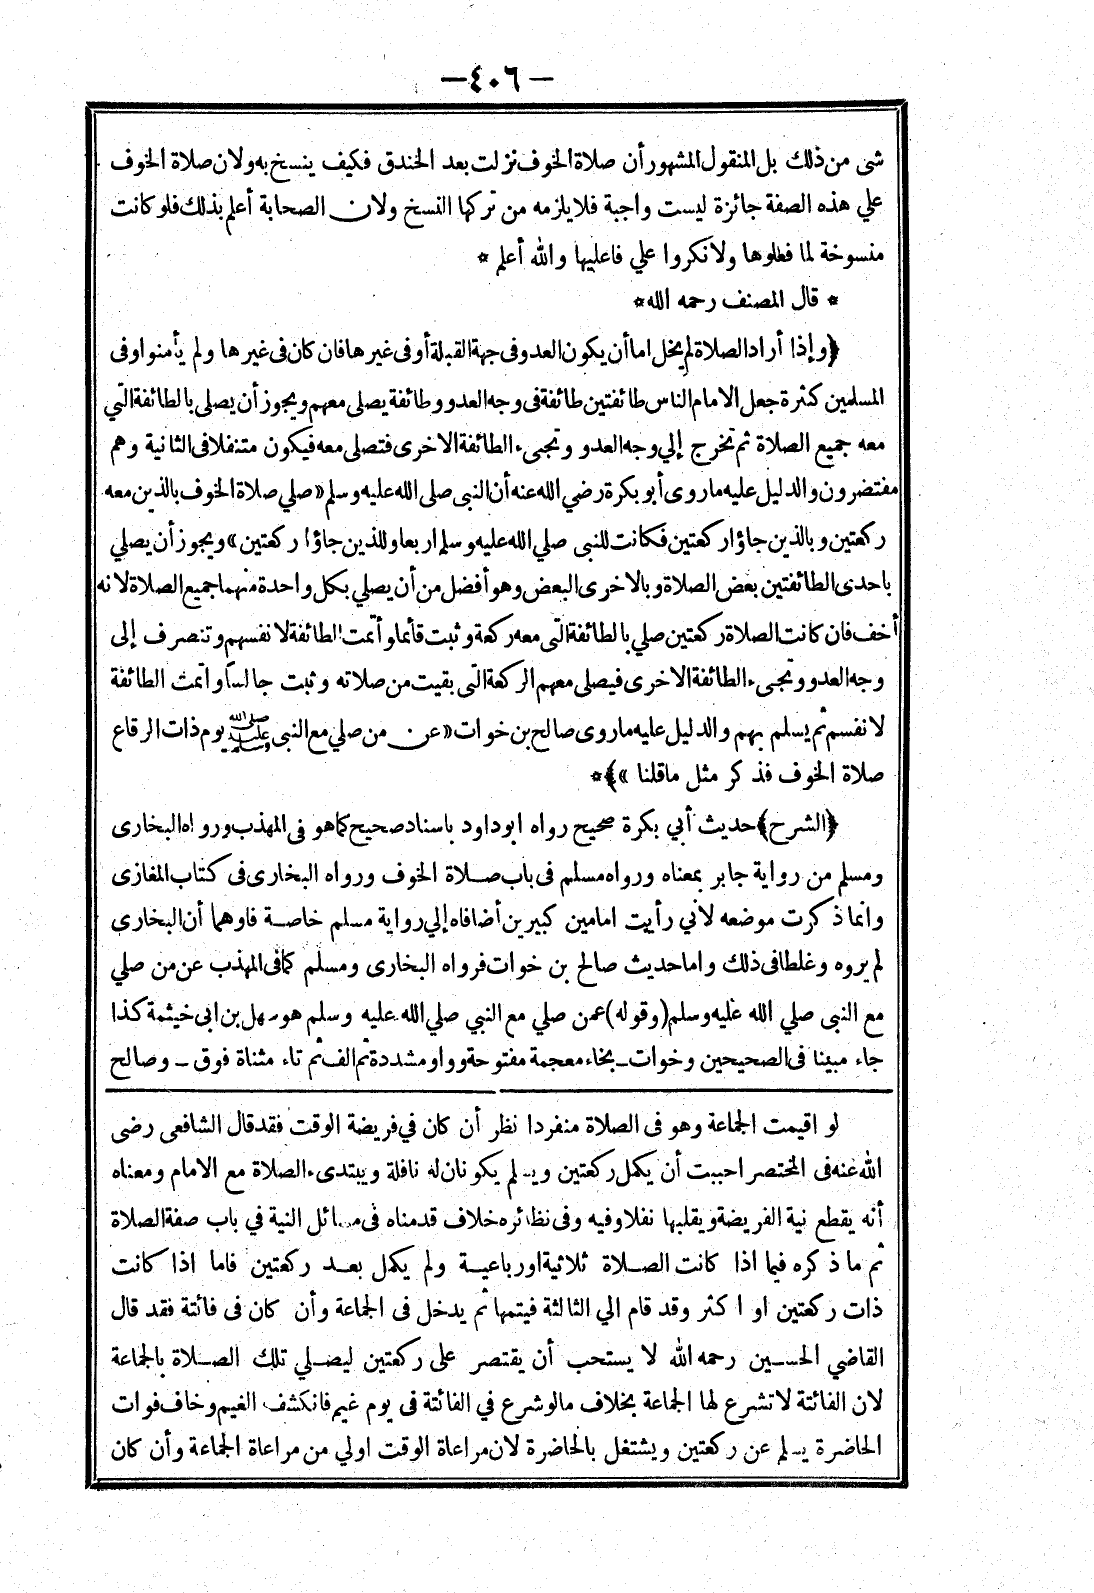 — ٤٠٦ —
شى من ذلك بل المنقول المشهور أن صلاة الخوف نزلت بعد الخندق فكيف ينسخ به ولان صلاة الخوف
علي هذه الصفة جائزة ليست واجبة فلا يلزمه من تركها النسخ ولان الصحابة أعلم بذلك فلو كانت
منسوخة لما فعلوها ولانكروا علي فاعليها والله أعلم *
* قال المصنف رحمه الله *
﴿وإذا أراد الصلاة لم يخل اما أن يكون العدو فى جهة القبلة أو فى غيرها فان كان فى غيرها ولم يأمنوا وفى
المسلمين كثرة جعل الامام الناس طائفتين طائفة فى وجه العدو وطائفة يصلى معهم ويجوز أن يصلى بالطائفة التي
معه جميع الصلاة ثم تخرج إلي وجه العدو وتجىء الطائفة الاخرى فتصلى معه فيكون متنفلا فى الثانية وهم
مفتضرون والدليل عليه ماروى أبو بكرة رضي الله عنه أن النبى صلى الله عليه وسلم «صلي صلاة الخوف بالذين معه
ركعتين وبالذين جاؤا ركعتين فكانت للنبى صلي الله عليه وسلم اربعا وللذين جاؤا ركعتين» ويجوز أن يصلي
باحدى الطائفتين بعض الصلاة وبالاخرى البعض وهو أفضل من أن يصلي بكل واحدة منهما جميع الصلاة لانه
أخف فان كانت الصلاة ركعتين صلي بالطائفة التى معه ركعة وثبت قائما وأتمت الطائفة لانفسهم وتنصرف إلى
وجه العدو وتجىء الطائفة الاخرى فيصلى معهم الركعة التى بقيت من صلاته وثبت جالسا وأتمت الطائفة
لانفسم ثم يسلم بهم والدليل عليه ماروى صالح بن خوات «عن من صلي مع النبى ﷺ يوم ذات الرقاع
صلاة الخوف فذكر مثل ماقلنا»﴾*
﴿الشرح﴾ حديث أبي بكرة صحيح رواه ابو داود باسناد صحيح كما هو فى المهذب ورواه البخارى
ومسلم من رواية جابر بمعناه ورواه مسلم فى باب صلاة الخوف ورواه البخارى فى كتاب المغازى
وانما ذكرت موضعه لأني رأيت امامين كبيرين أضافاه إلي رواية مسلم خاصة فاوهما أن البخارى
لم يروه وغلطا فى ذلك واما حديث صالح بن خوات فرواه البخارى ومسلم كما فى المهذب عن من صلي
مع النبى صلي الله عليه وسلم (وقوله) عمن صلي مع النبي صلي الله عليه وسلم هو سهل بن ابى خيثمة كذا
جاء مبينا فى الصحيحين وخوات ــ بخاء معجمة مفتوحة وواو مشددة ثم الف ثم تاء مثناة فوق ــ وصالح
لو اقيمت الجماعة وهو فى الصلاة منفردا نظر أن كان في فريضة الوقت فقد قال الشافعى رضى
الله عنه فى المختصر احببت أن يكمل ركعتين ويسلم يكونان له نافلة ويبتدىء الصلاة مع الامام ومعناه
أنه يقطع نية الفريضة ويقلبها نفلا وفيه وفى نظائره خلاف قدمناه فى مسائل النية في باب صفة الصلاة
ثم ما ذكره فيما اذا كانت الصلاة ثلاثية او رباعية ولم يكمل بعد ركعتين فاما اذا كانت
ذات ركعتين او اكثر وقد قام الي الثالثة فيتمها ثم يدخل فى الجماعة وأن كان فى فائتة فقد قال
القاضي الحسين رحمه الله لا يستحب أن يقتصر على ركعتين ليصلي تلك الصلاة بالجماعة
لان الفائتة لا تشرع لها الجماعة بخلاف مالو شرع في الفائتة فى يوم غيم فانكشف الغيم وخاف فوات
الحاضرة يسلم عن ركعتين ويشتغل بالحاضرة لان مراعاة الوقت اولي من مراعاة الجماعة وأن كان